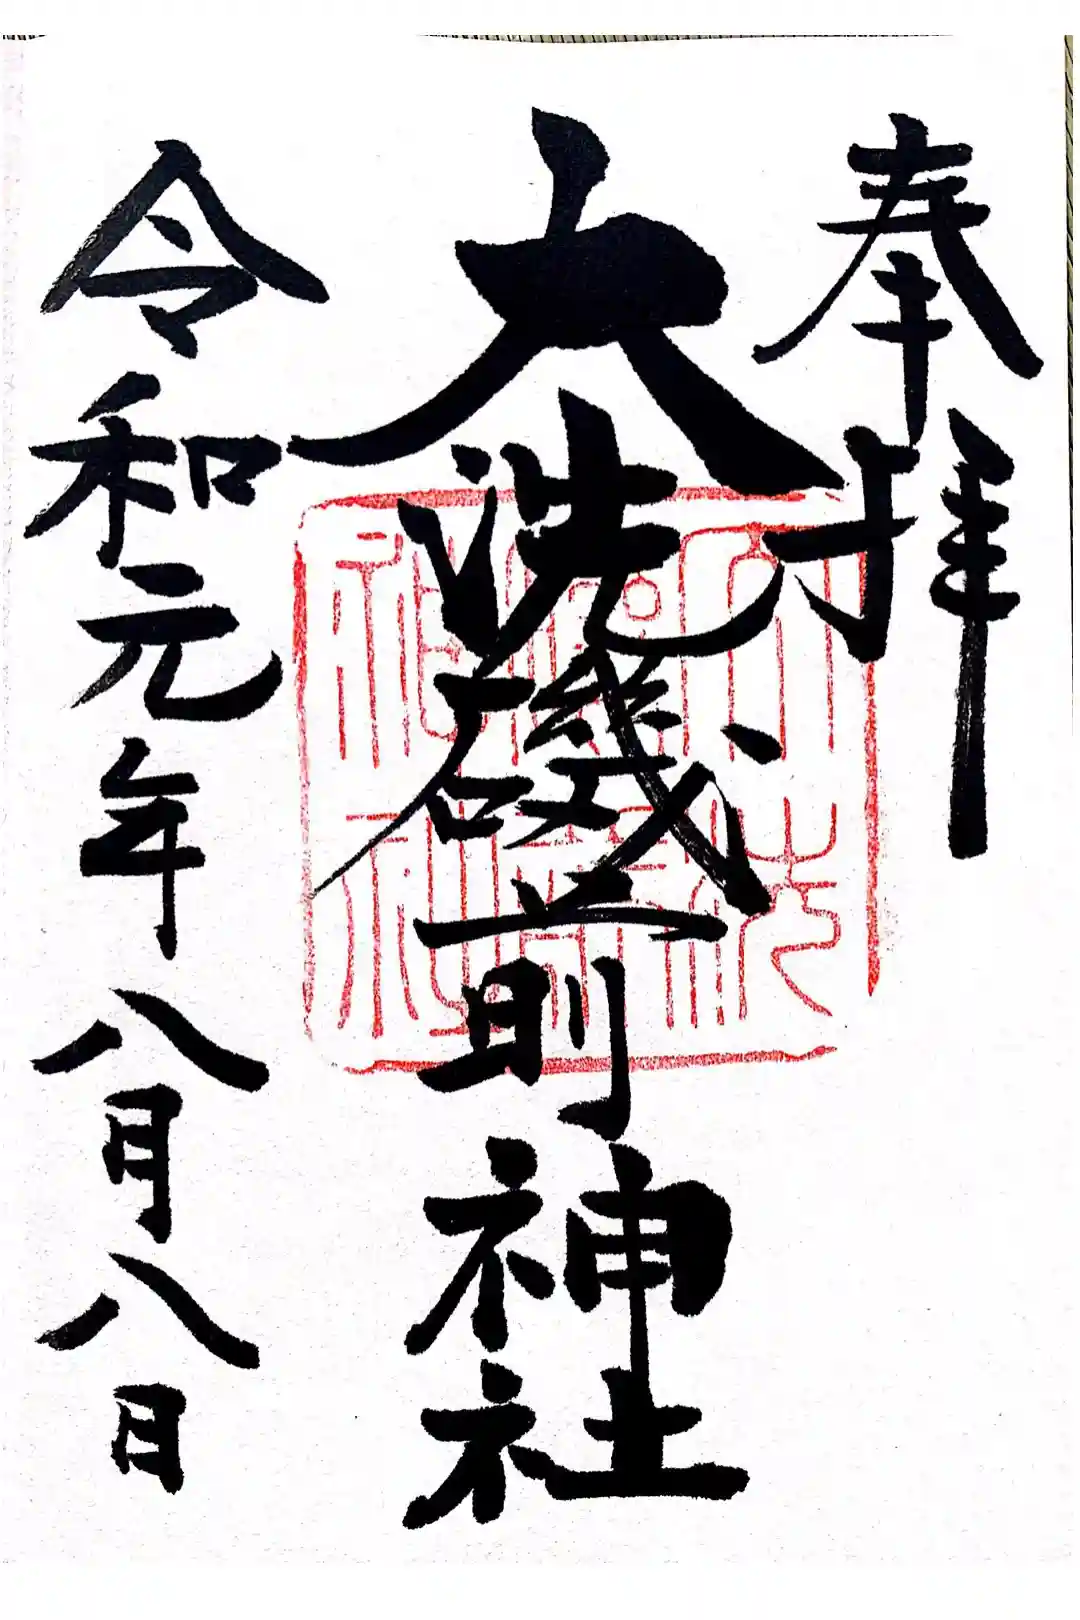 奉拝
大洗磯前神社
令和元年八月八日